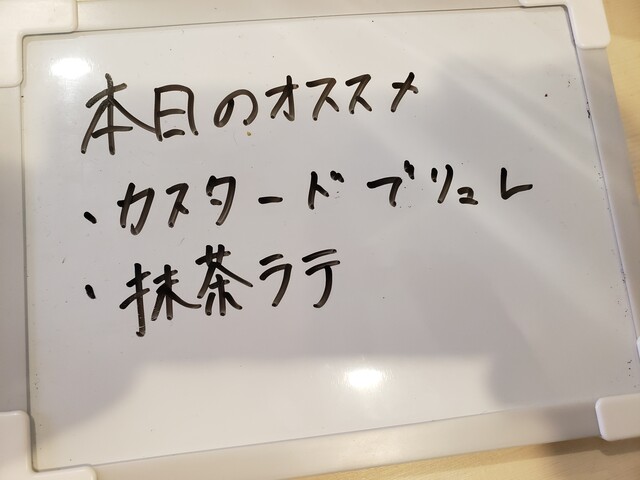 本日のオススメ
・カスタード ブリュレ
・抹茶ラテ